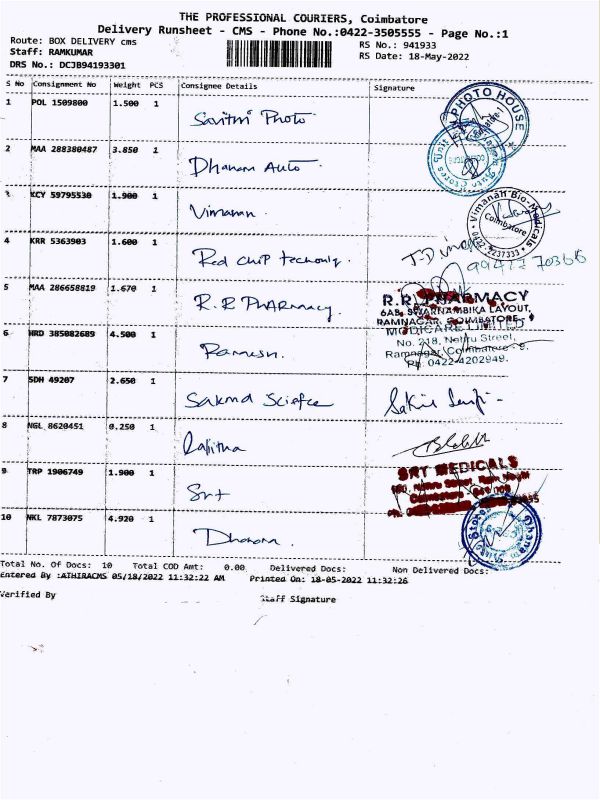 THE PROFESSIONAL COURIERS, Coimbatore
Delivery Runsheet - CMS - Phone No.:0422-3505555 - Page No.:1
Route: BOX DELIVERY cms
RS No.: 941933
Staff: RAMKUMAR
RS Date: 18-May-2022
DRS No.: DCJB94193301
S No Consignment No Weight PCS Consignee Details Signature
1 POL 1509800 1.500 1 Savithri Photo
PHOTO HOUSE
2 MAA 288380487 3.850 1 Dhanam Auto
3 KCY 59795530 1.900 1 Vimanan
Vimanan Bio-Medicals
Coimbatore
0422-2237333
4 KRR 5363903 1.600 1 Red chip
5 MAA 286658819 1.670 1 R.R PHARmacy.
R.R. PHARMACY
6AB, SWARNAMBIKA LAYOUT,
RAMNAGAR, COIMBATORE - 9
6 HRD 385082689 4.500 1 Ramesh.
MODICARE LIMITED
No. 218, Nehru Street,
Ramnagar, Coimbatore - 9.
Ph: 0422-4202949.
7 SDH 49207 2.650 1
8 NGL 8620451 0.250 1 Lalitha
9 TRP 1906749 1.900 1 Srt
SRT MEDICALS
10 NKL 7873075 4.920 1 Dhanam
Total No. Of Docs: 10 Total COD Amt: 0.00 Delivered Docs: Non Delivered Docs:
Entered By :ATHIRACMS 05/18/2022 11:32:22 AM Printed On: 18-05-2022 11:32:26
Verified By Staff Signature